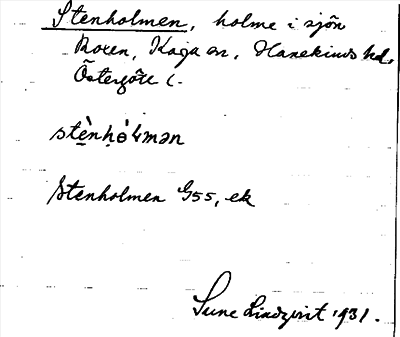 Stenholmen, holme i sjön
Roxen, Kaga sn, Hanekinds hd,
Östergötl.
stè̱nhó̤lmən
Stenholmen G55, ek
Sune Lindqvist 1931.